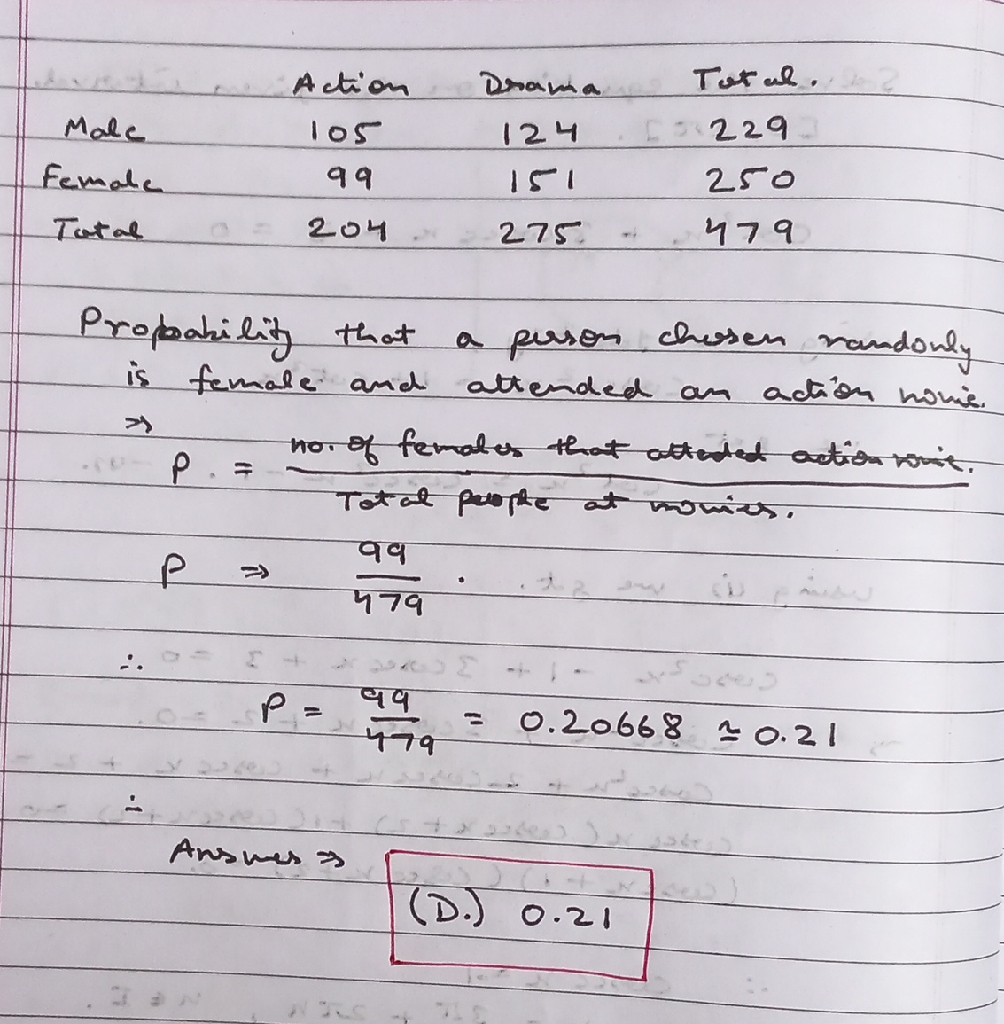 Action Drama Total.
Male 105 124 229
Female 99 151 250
Total 204 275 479
Propbability that a person chosen randomly
is female and attended an action movie.
⇒
P. = no. of females that attended action movie.
Total people at movies.
P ⇒ 99
479 .
∴
P = 99
479 = 0.20668 ≃ 0.21
∴
Answer ⇒
(D.) 0.21